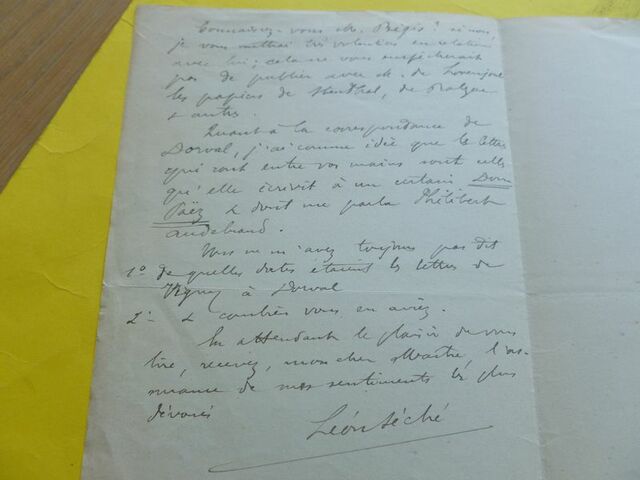 Connaissez-vous M. Régis ? si non,
je vous mettrai très volontiers en relations
avec lui ; cela ne vous empêcherait
pas de publier avec M. de Lovenjoul
les papiers de Stendhal, de Balzac
& autres.
Quant à la correspondance de
Dorval, j'ai comme idée que les lettres
qui sont entre vos mains sont celles
qu'elle écrivit à un certain Dom
Païz & dont me parla Philibert
Audebrand.
Vous ne m'avez toujours pas dit
1º de quelles dates étaient les lettres de
Vigny à Dorval
2º & combien vous en aviez.
En attendant le plaisir de vous
lire, recevez, mon cher Maître, l'as-
surance de mes sentiments les plus
dévoués
Léon Séché